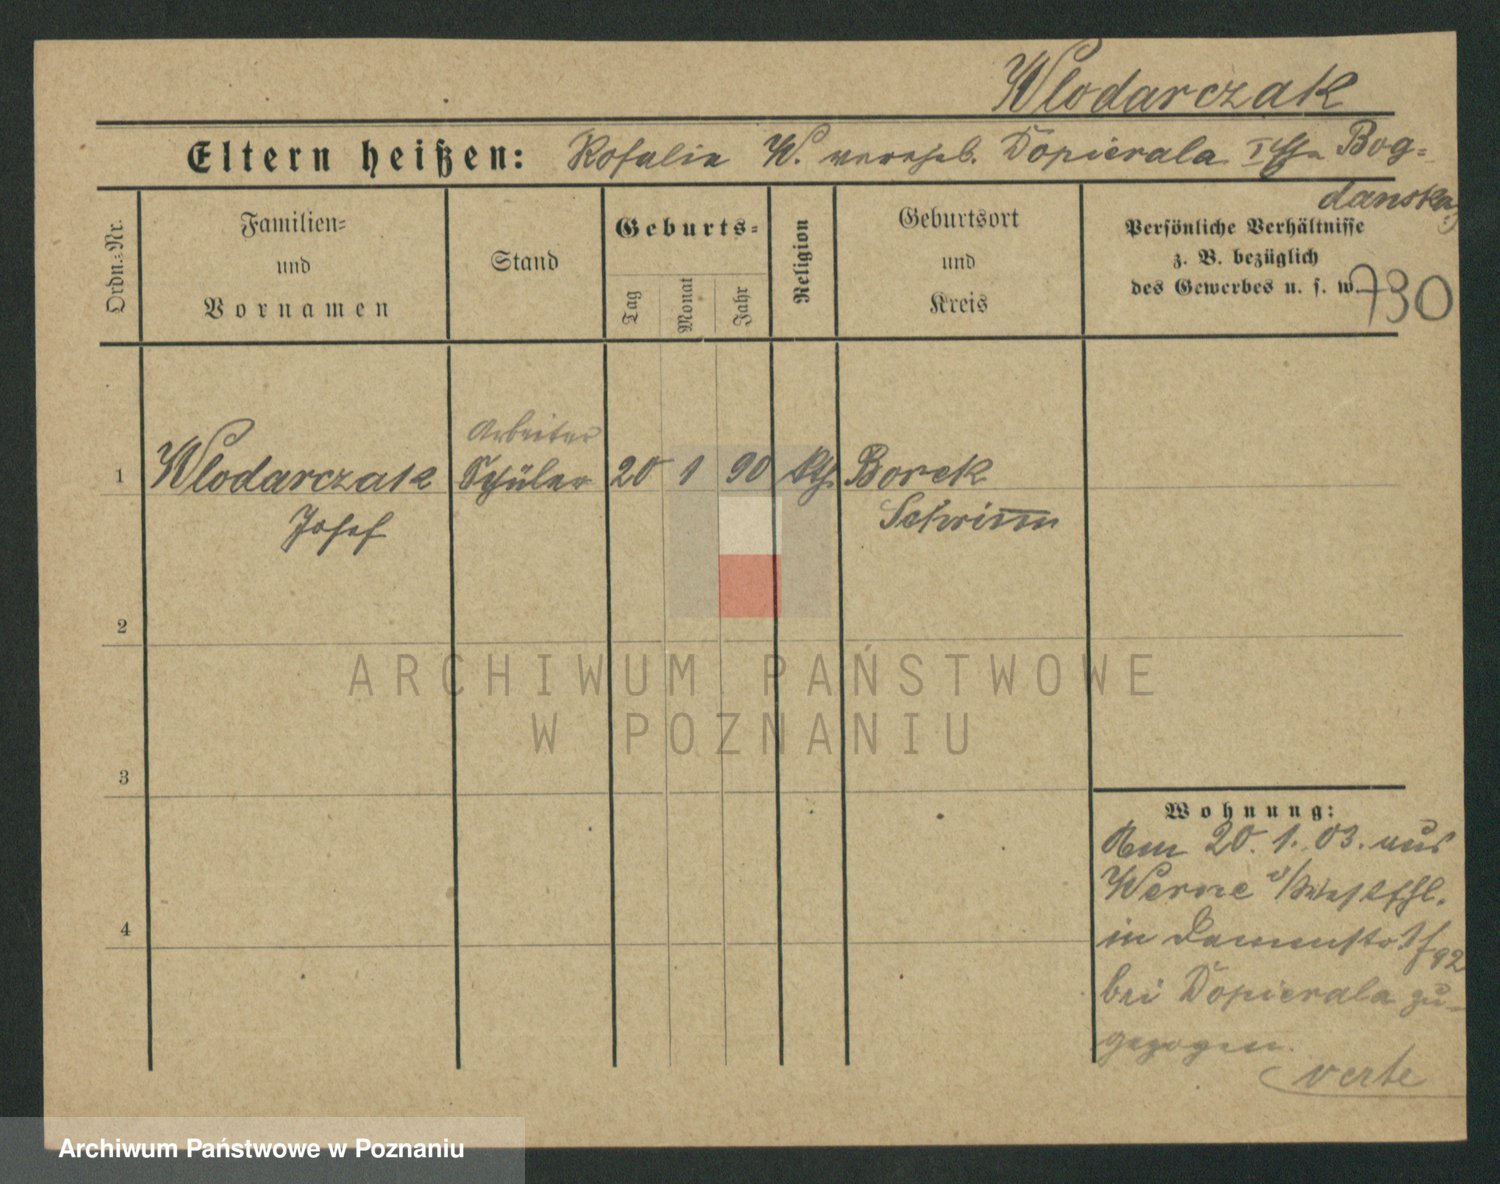 Wlodarczak
Eltern heißen: Rosalie W. verehel. Dopierala Bog=
danska
Ordn.=Nr.
Familien=
und
Vornamen
Stand
Geburts=
Tag
Monat
Jahr
Religion
Geburtsort
und
Kreis
Persönliche Verhältnisse
z. B. bezüglich
des Gewerbes u. s. w.
730
Arbeiter
1 Wlodarczak Schüler 20 1 90 kth. Borek
Josef Schrimm
2
3
4
Wohnung:
Am 20.1.03. aus
Werne i/Westfhl.
in
bei Dopierala zu=
gezogen.
verte
ARCHIWUM PAŃSTWOWE
W POZNANIU
Archiwum Państwowe w Poznaniu